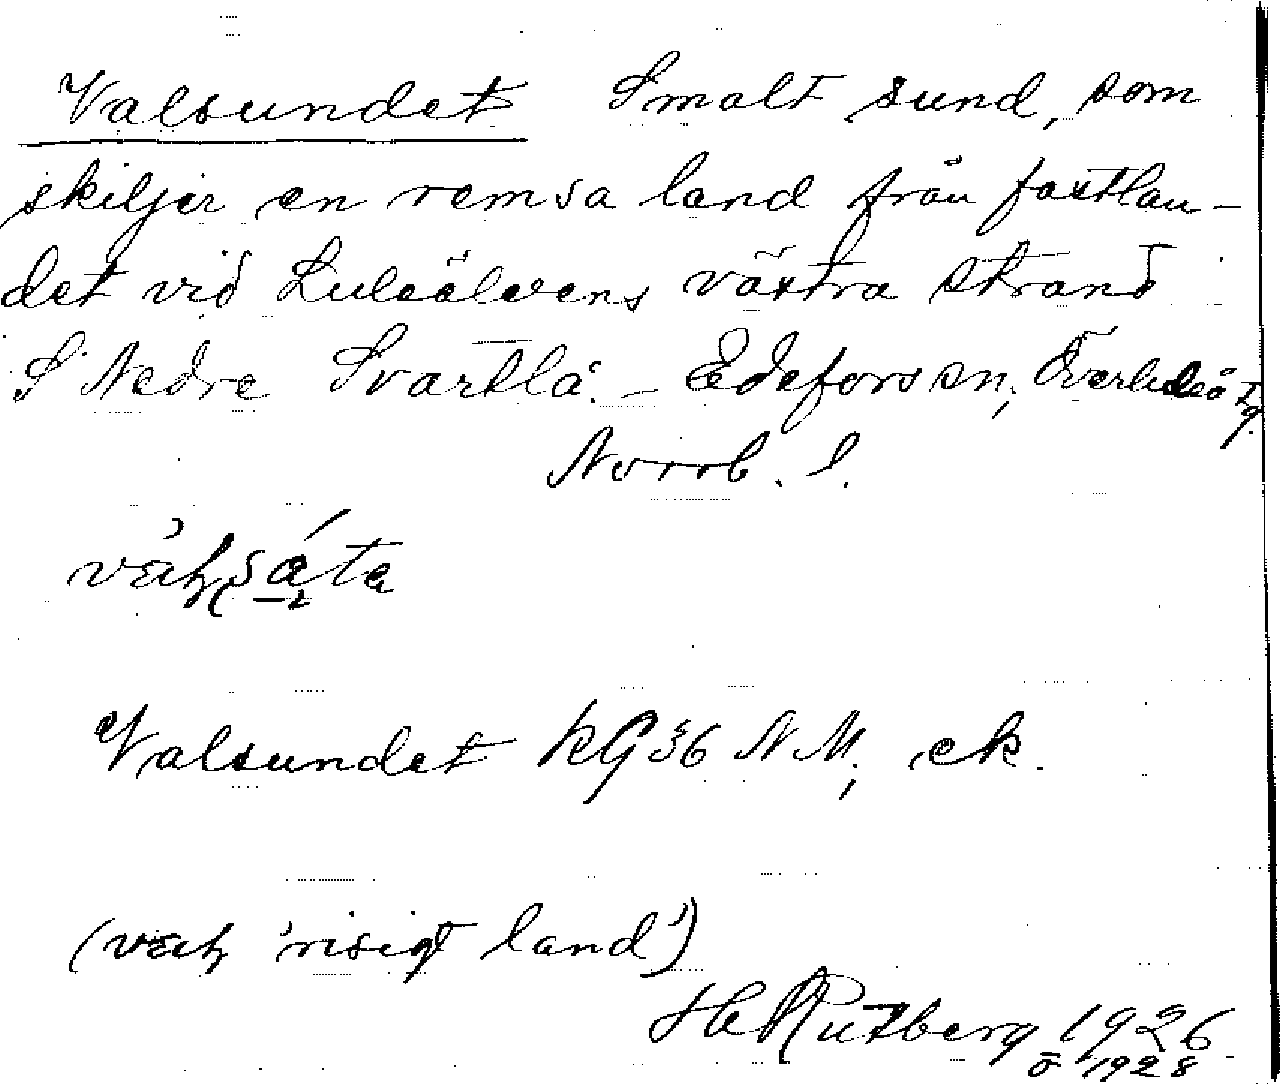 Valsundet Smalt sund, som
skiljer en remsa land från fastlan-
det vid Luleälvens västra strand
S Nedre Svartlå. – Edeforsen, Överluleå tg.
Norrb. l.
Valsundet KG 36 NM, ek.
'risigt land')
H Rutberg 1926
o 1928